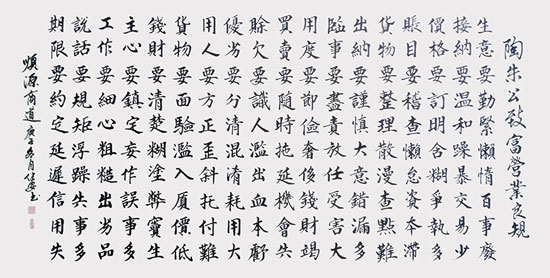 陶朱公致富營業良規
生意要勤緊懶惰百事廢
接納要溫和躁暴交易少
價格要訂明含糊爭執多
賬目要稽查懶怠資本滯
貨物要整理散漫查點難
出納要謹慎大意錯漏多
臨事要盡責放任受害大
用度要節儉奢侈錢財竭
買賣要隨時拖延機會失
賒欠要識人濫出血本虧
優劣要分清混淆耗用大
用人要方正歪斜托付難
貨物要面驗濫入價低
錢財要清楚糊塗弊竇生
主心要鎮定妄作誤事多
工作要細心粗糙出劣品
說話要規矩浮躁失事多
期限要約定延遲信用失
順源商道庚子冬月書